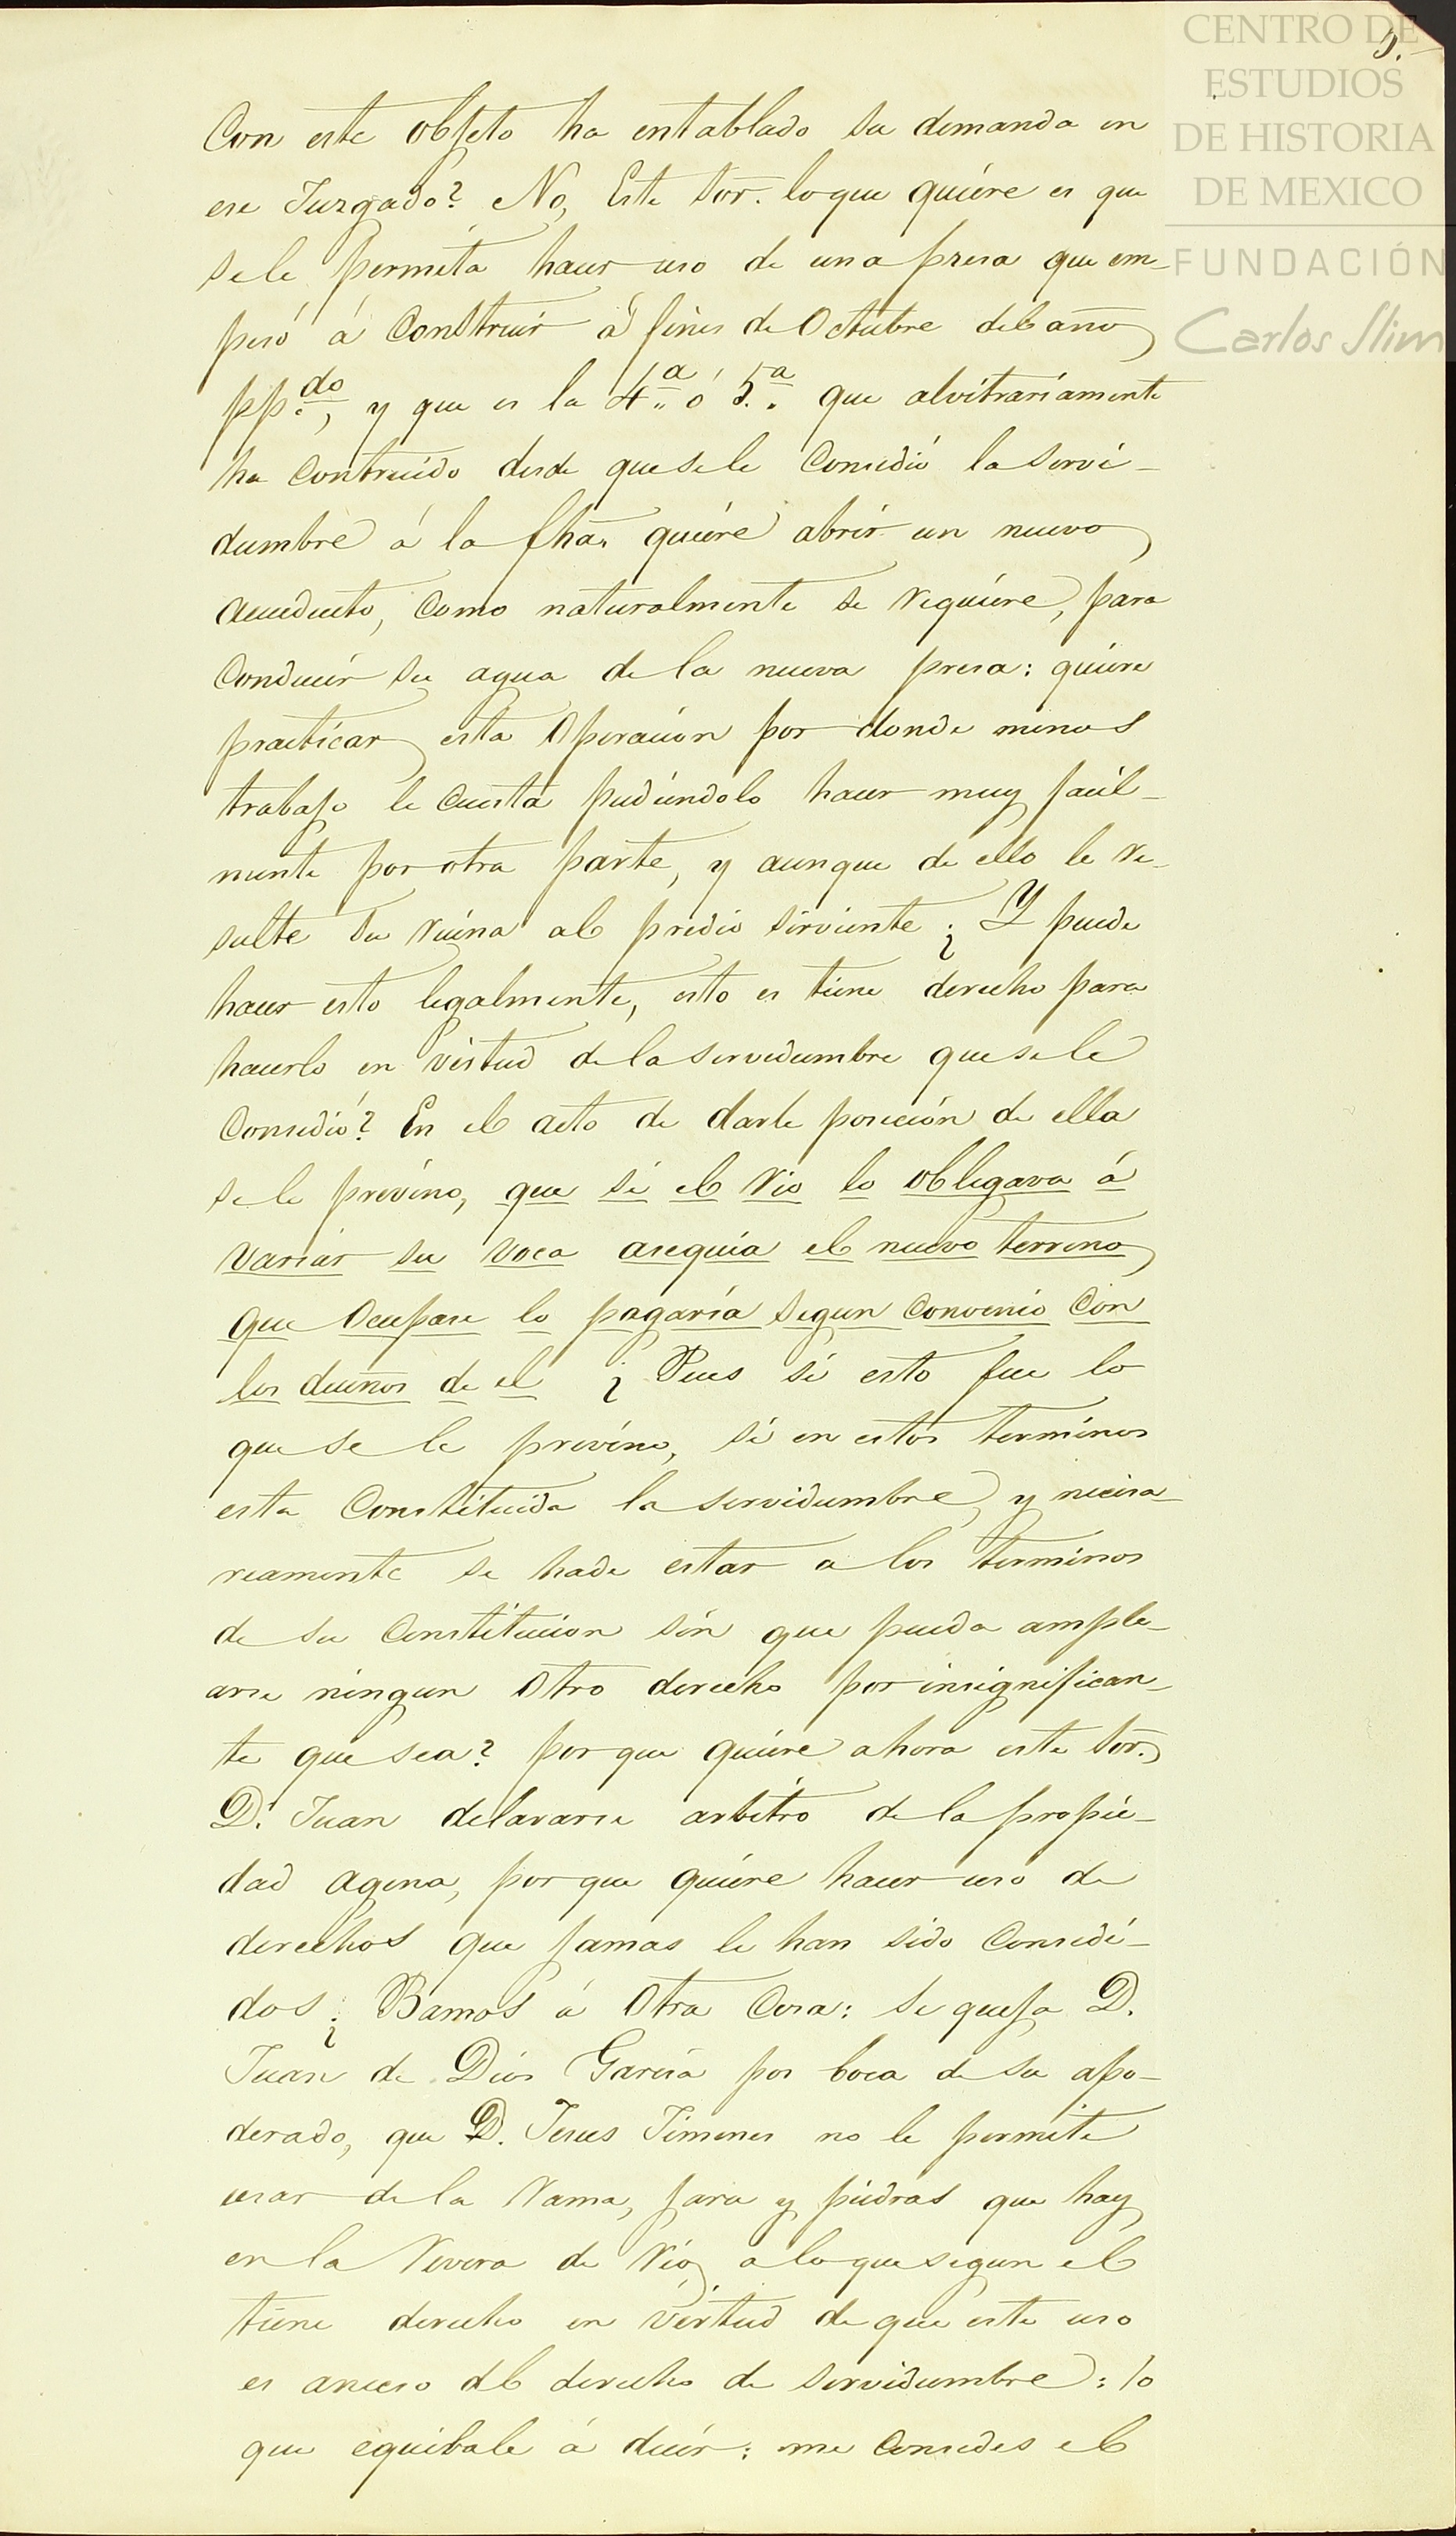 CENTRO DE
ESTUDIOS
DE HISTORIA
DE MEXICO
FUNDACIÓN
Carlos Slim
5.
Con este objeto ha entablado su demanda en
ese Juzgado? No, Este Sor. lo que quiere es que
se le permita hacer uso de una presa que em-
pesó á Construir á fines de Octubre del año
pp.do, y que es la 4.a ó 5.a que alvitrariamente
ha Contruido desde que se le Consedió la servi-
dumbre á la fha. quiere abrir un nuevo
acueducto, Como naturalmente se requiere, para
Conducir su agua de la nueva presa: quiere
practicar esta Operacion por donde menos
trabajo le Cuesta pudiendolo hacer muy facil-
mente por otra parte, y aunque de ello le re-
sulte su ruina al predio sirviente ¿ Y puede
hacer esto legalmente, esto es tiene derecho para
hacerlo en virtud de la servidumbre que se le
Consedió? En el acto de darle posecion de ella
se le previno, que si el rio lo obligava á
variar su voca asequia el nuevo terreno
que Ocupase lo pagaria segun Convenio Con
los dueños de el ¿ Pues si esto fue lo
que se le previno, si en estos terminos
esta Constituida la servidumbre, y necesa-
reamente se hade estar a los terminos
de su Constitucion sin que puedaample-
arse ningun Otro derecho por insignifican-
te que sea? por que quiere ahora este Sor.
D. Juan delararse arbitro de la propie-
dad agena, por que quiere hacer uso de
derechos que jamas le han sido Consedi-
dos ¿ Bamos á Otra Cosa: se queja D.
Juan de Dios Garcia por boca de su apo-
derado, que D. Jesus Jimenes no le permite
usar de la rama, jara y piedras que hay
en la rivera de rio, a lo que segun el
tiene derecho en virtud de que este uso
es anecso del derecho de servidumbre: lo
que equibale á decir: me Consedes el